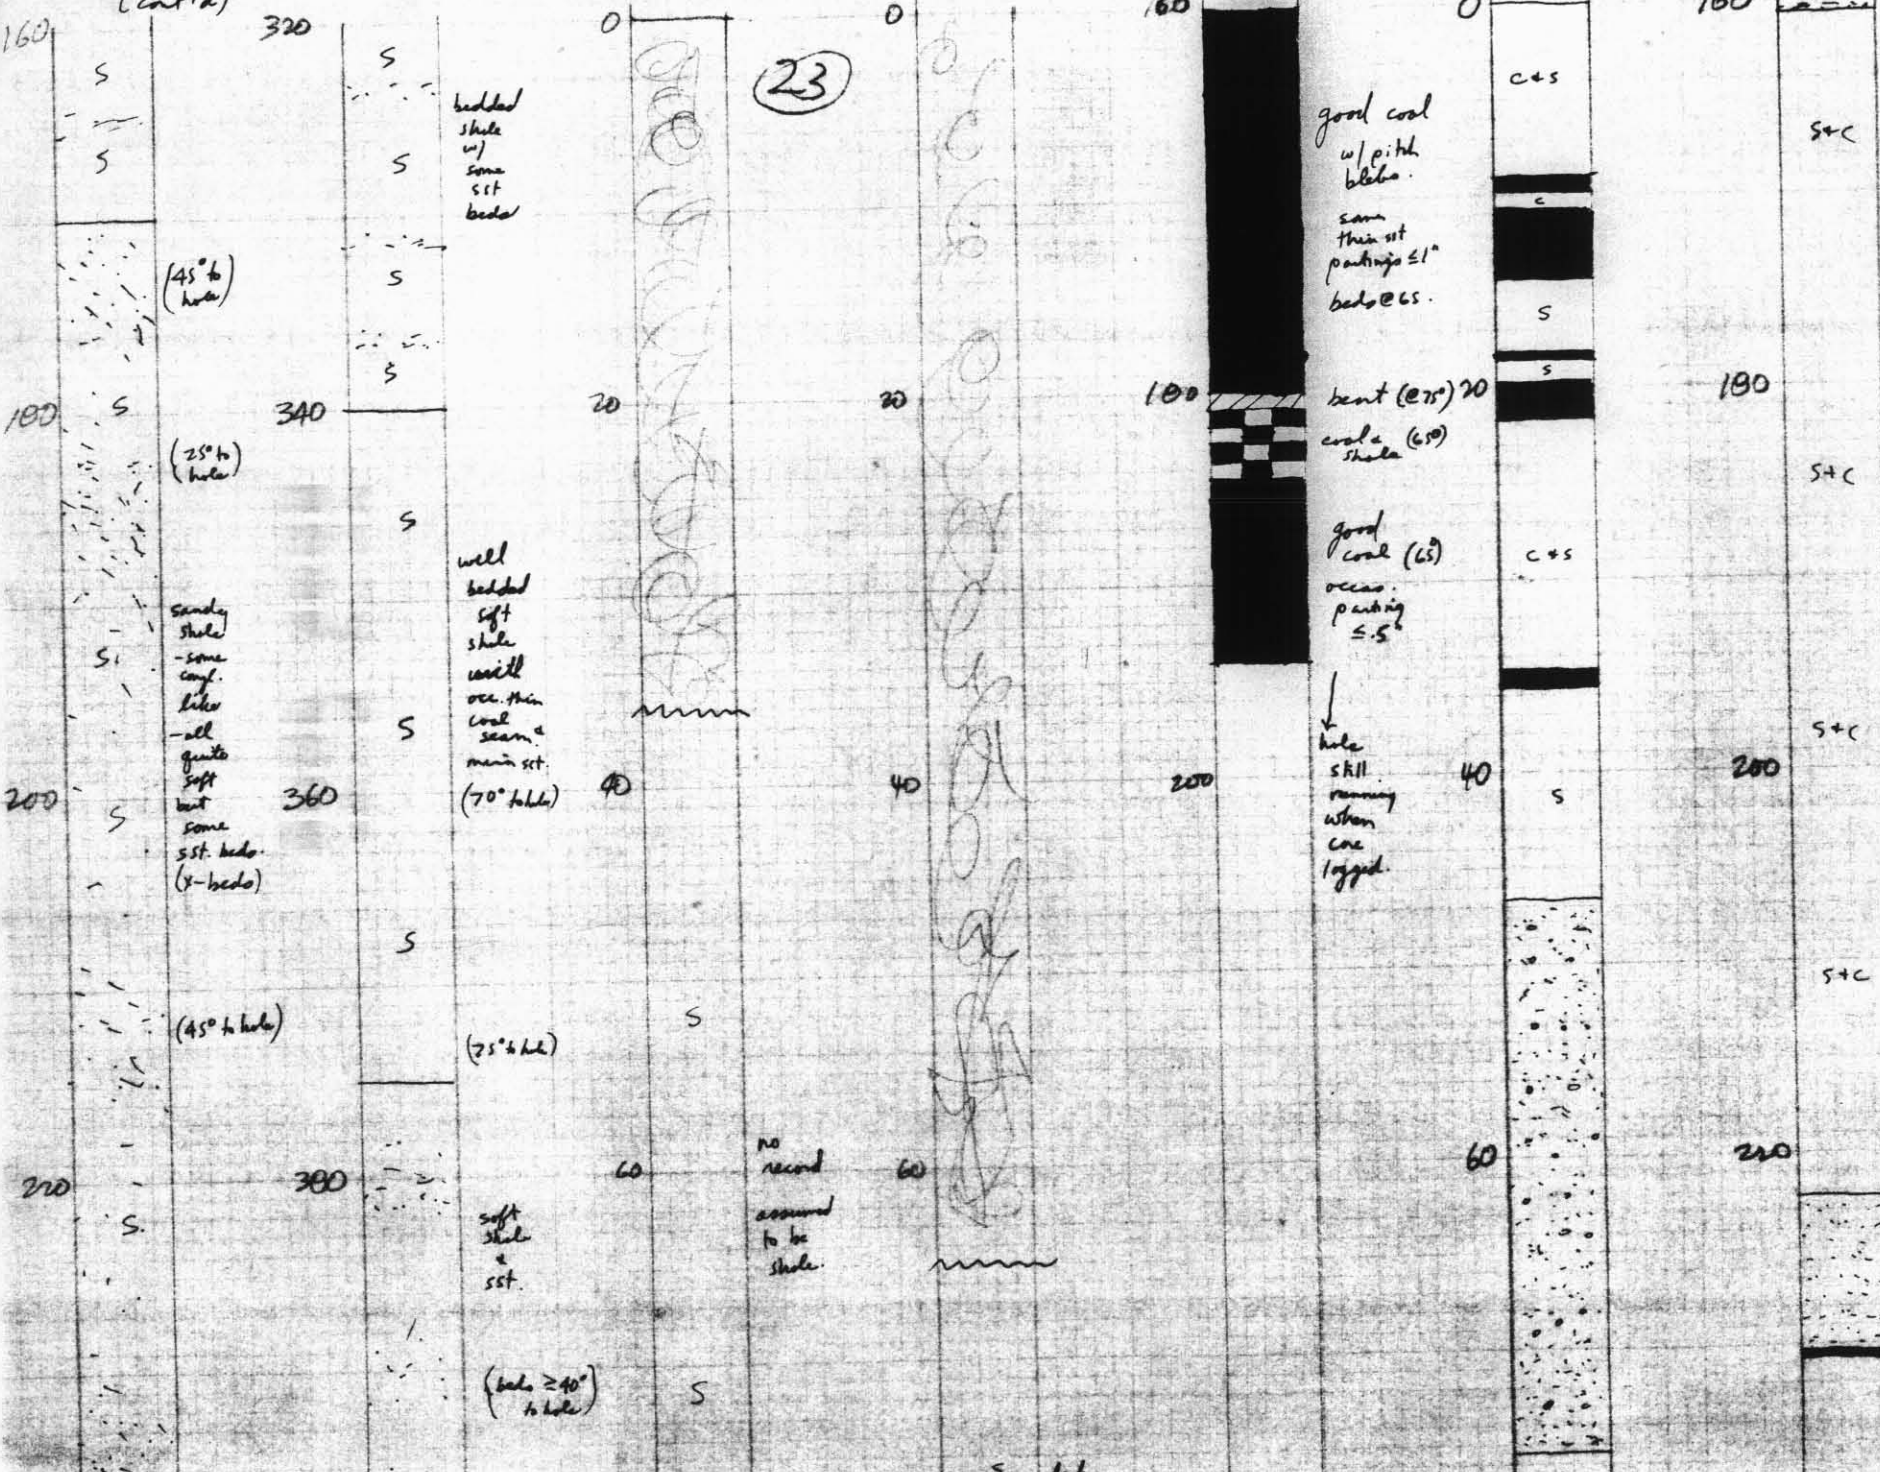 (cont'd)
160
S
S
(45° to
hole)
180
S
(25° to
hole)
sandy
shale
-some
congl.
like
-all
quite
soft
but
some
sst. beds.
(x-beds)
S
200
S
(45° to hole)
220
S
320
S
S
S
S
bedded
shale
w/
some
sst
beds
340
S
well
bedded
soft
shale
with
occ. thin
coal
seam &
sst.
(70° to hole)
S
360
S
(75° to hole)
380
soft
shale
&
sst.
(beds ≥40°
to hole)
0
23
20
40
S
60
no
record
assumed
to be
shale.
S
0
20
40
60
160
good coal
w/ pitch
blebs.
some
thin sst
partings ≤1"
beds @ 65.
180
bent (@75°)
coal &
shale (65°)
good
coal (65°)
occas.
parting
≤.5"
200
hole
still
running
when
core
logged.
0
C+S
C
S
S
20
C+S
40
S
60
160
S+C
180
S+C
S+C
200
S+C
220